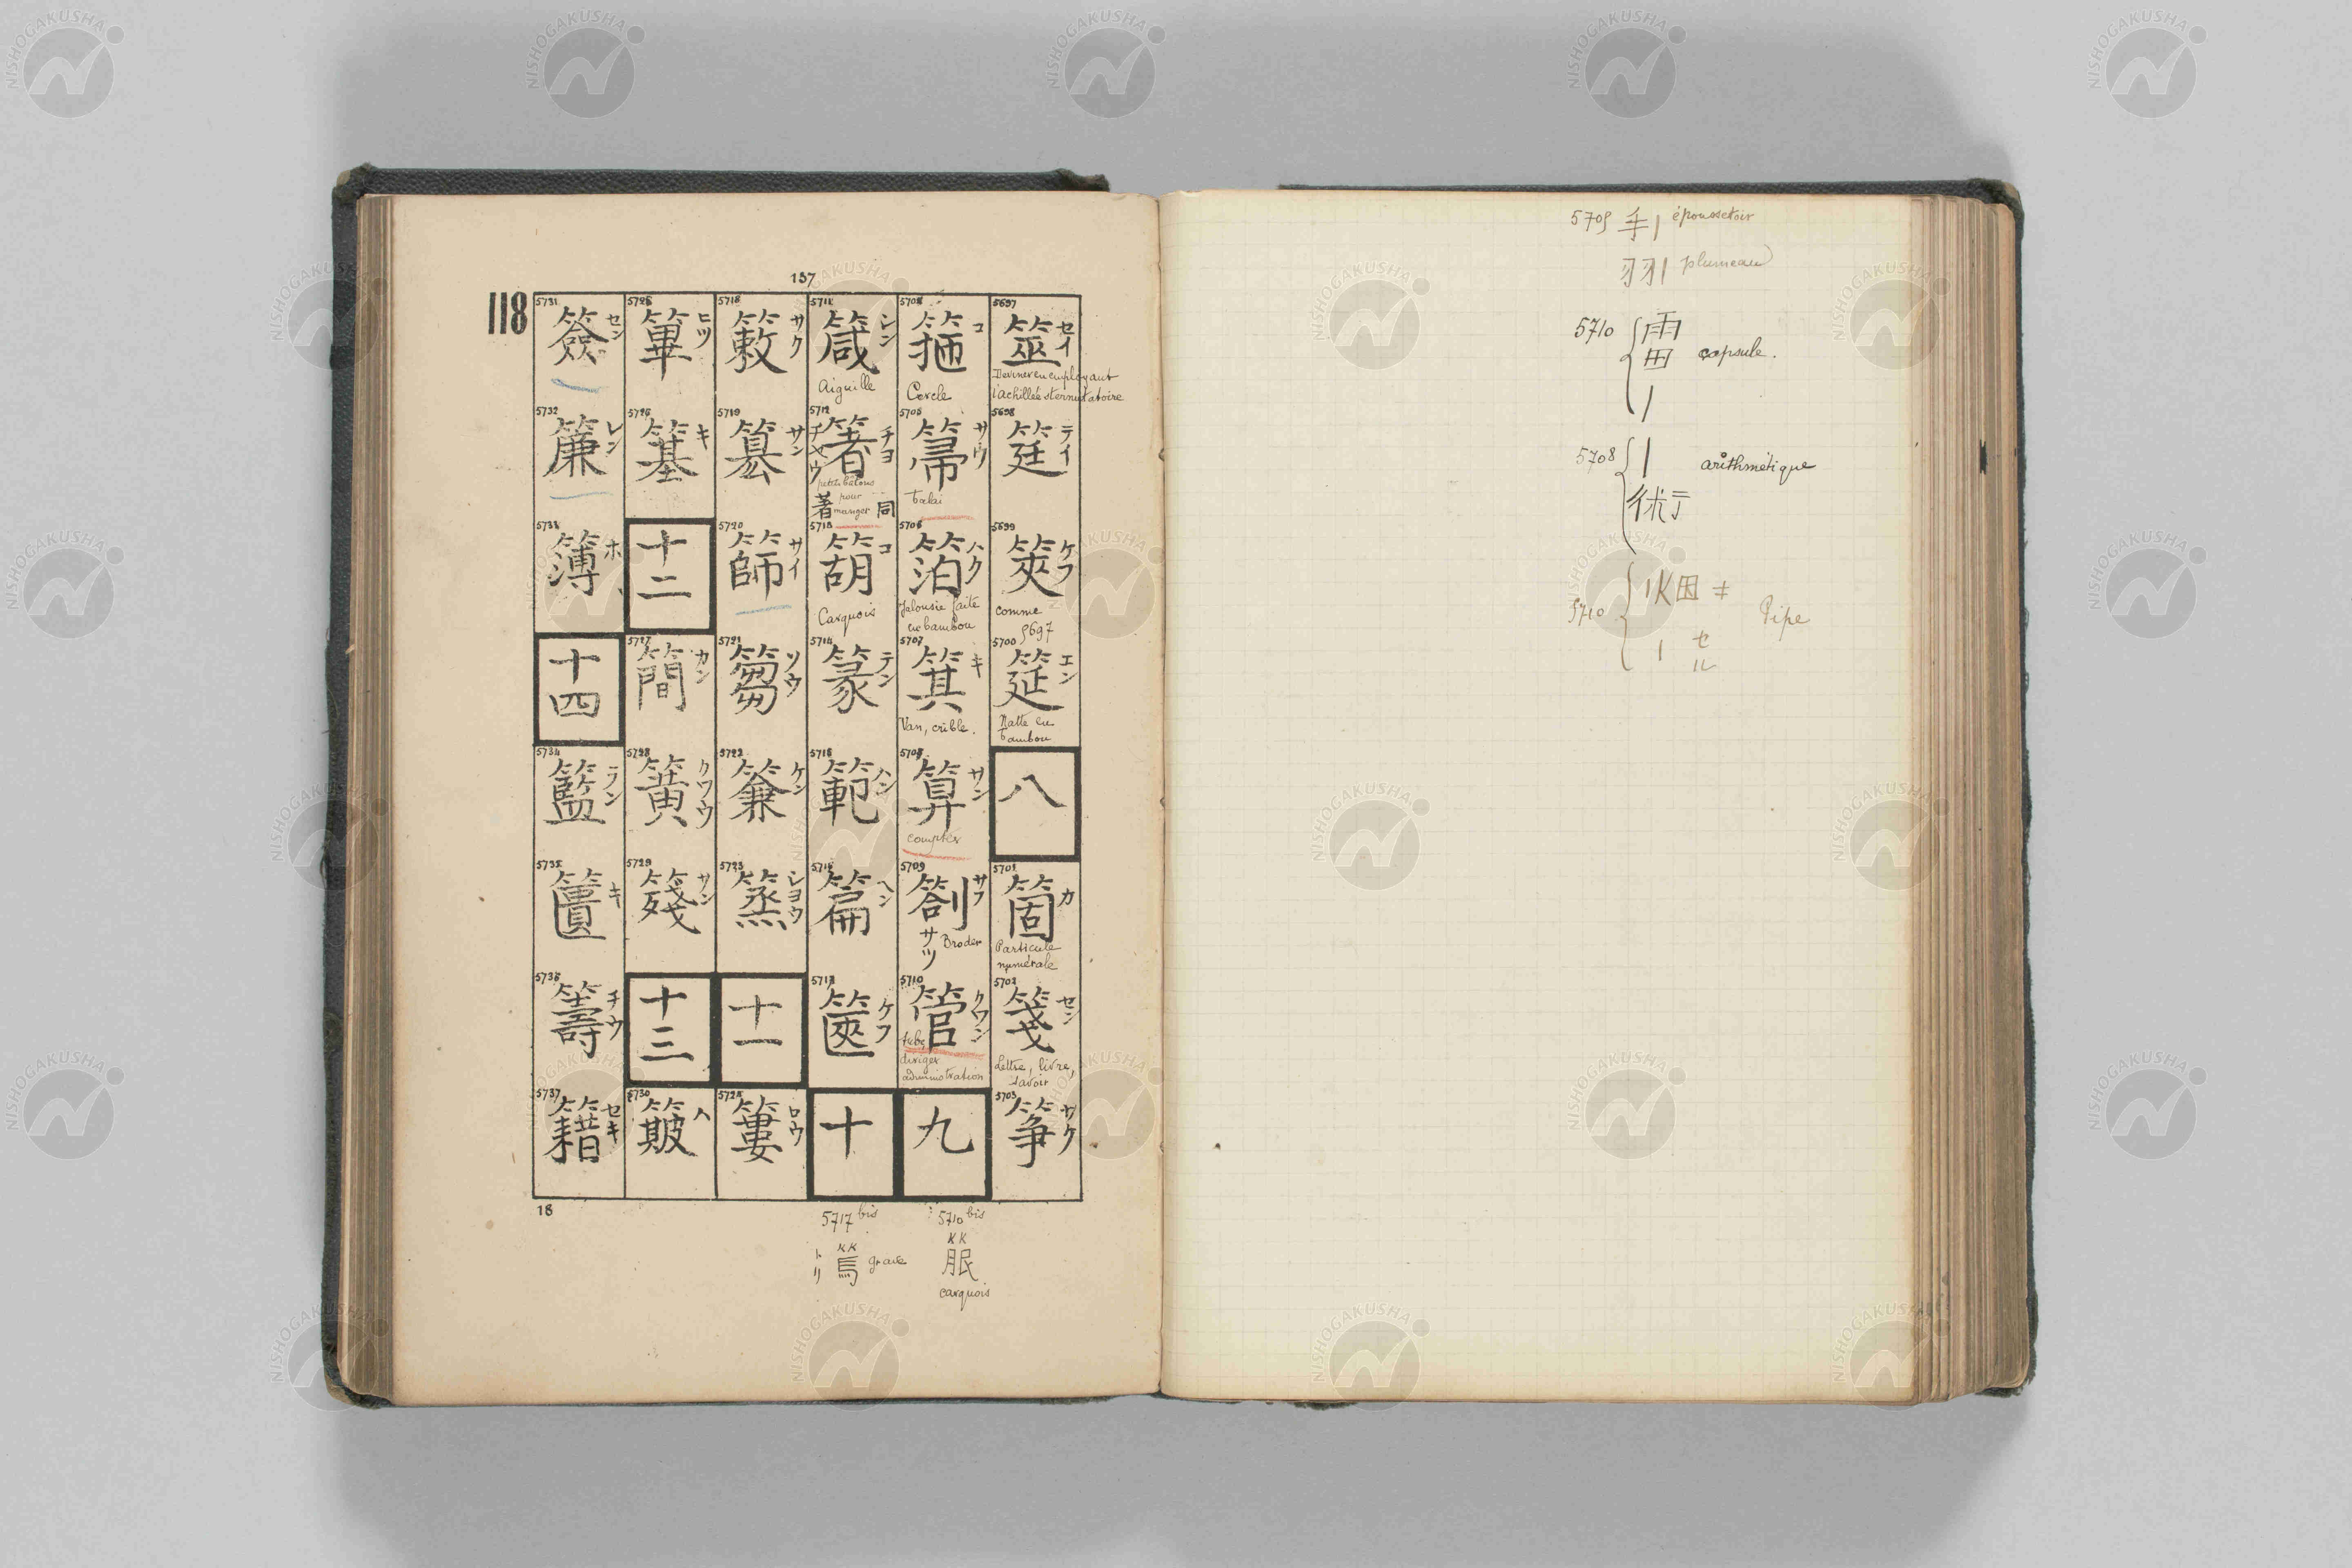 137
118
5697
筮 セイ
Deviner en employant
l'achillée sternutatoire
5698
筳 テイ
5699
筴 ケフ
comme
5697
5700
筵 エン
Natte en
bambou
八
5701
箇 カ
Particule
numérale
5702
箋 セン
Lettre, livre,
savoir
5703
箏 サウ
5704
箍 コ
Cercle
5705
箒 サウ
balai
5706
箔 ハク
Jalousie faite
en bambou
5707
箕 キ
Van, crible.
5708
算 サン
compter
5709
劄 サフ
サツ
Broder
5710
管 クワン
tube
diriger
administration
九
5711
箴 シン
Aiguille
5712
箸 チヨ
チヤウ
petits batons
pour
manger
著 同
5713
箶 コ
Carquois
5714
篆 テン
5715
範 ハン
5716
篇 ヘン
5717
篋 ケフ
十
5718
簌 サク
5719
篡 サン
5720
篩 サイ
5721
篘 ソウ
5722
䈴 ケン
5723
䕃 シヨウ
十一
5724
簍 ロウ
5725
篳 ヒツ
5726
簊 キ
十二
5727
簡 カン
5728
簧 クワウ
5729
サン
十三
5730
簸 ハ
5731
簽 セン
5732
簾 レン
5733
簿 ホ
十四
5734
籃 ラン
5735
簣 キ
5736
籌 チウ
5737
籍 セキ
18
5717 bis
篤 grave
トリ
5710 bis
箙
carquois
5705 手| époussetoir
羽| plumeau
5710 雷 | capsule.
5708 | 術 arithmétique
5710 | 烟 キ
セ
ル
Pipe